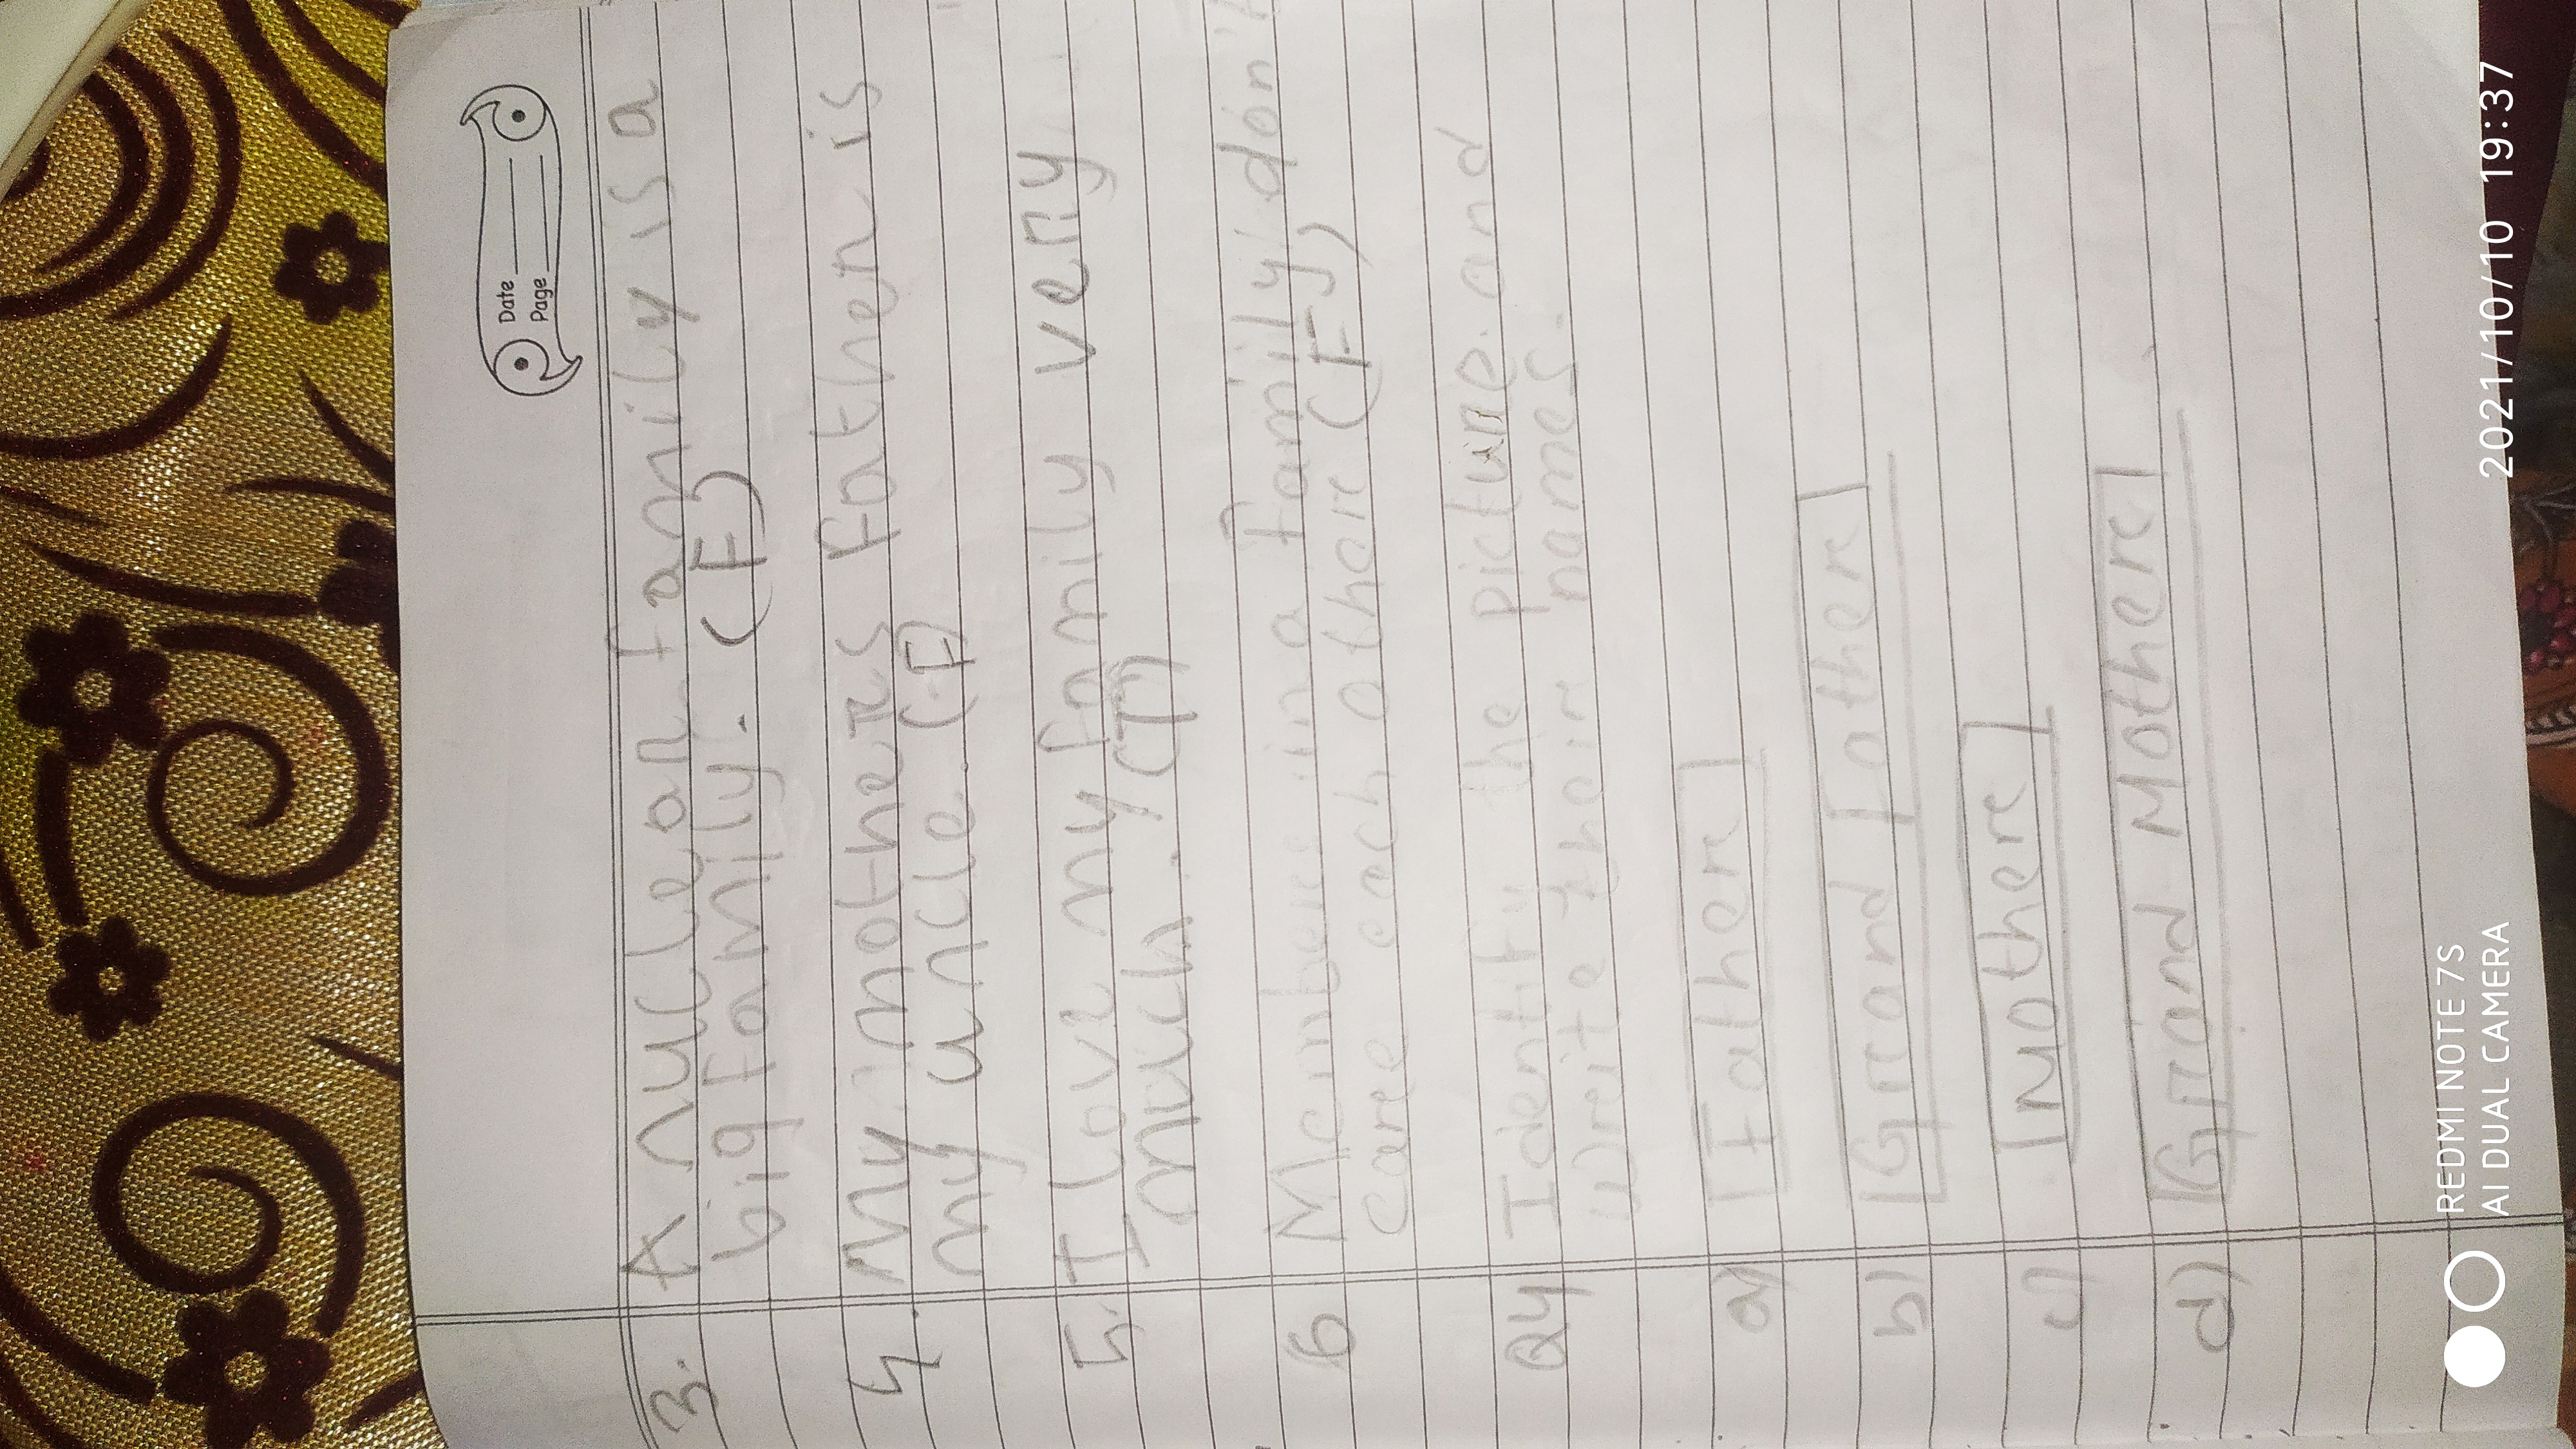 Date
Page
3. A nuclear family is a
big family. (F)
4. My mothers father is
my uncle (F)
5. I love my family very
much. (T)
6 Member in a family don't
care each other (F)
Q4 Identify the picture and
write their names.
a) Father
b) Grand Father
c) Mother
d) Grand Mother
REDMI NOTE 7S
AI DUAL CAMERA
2021/10/10 19:37